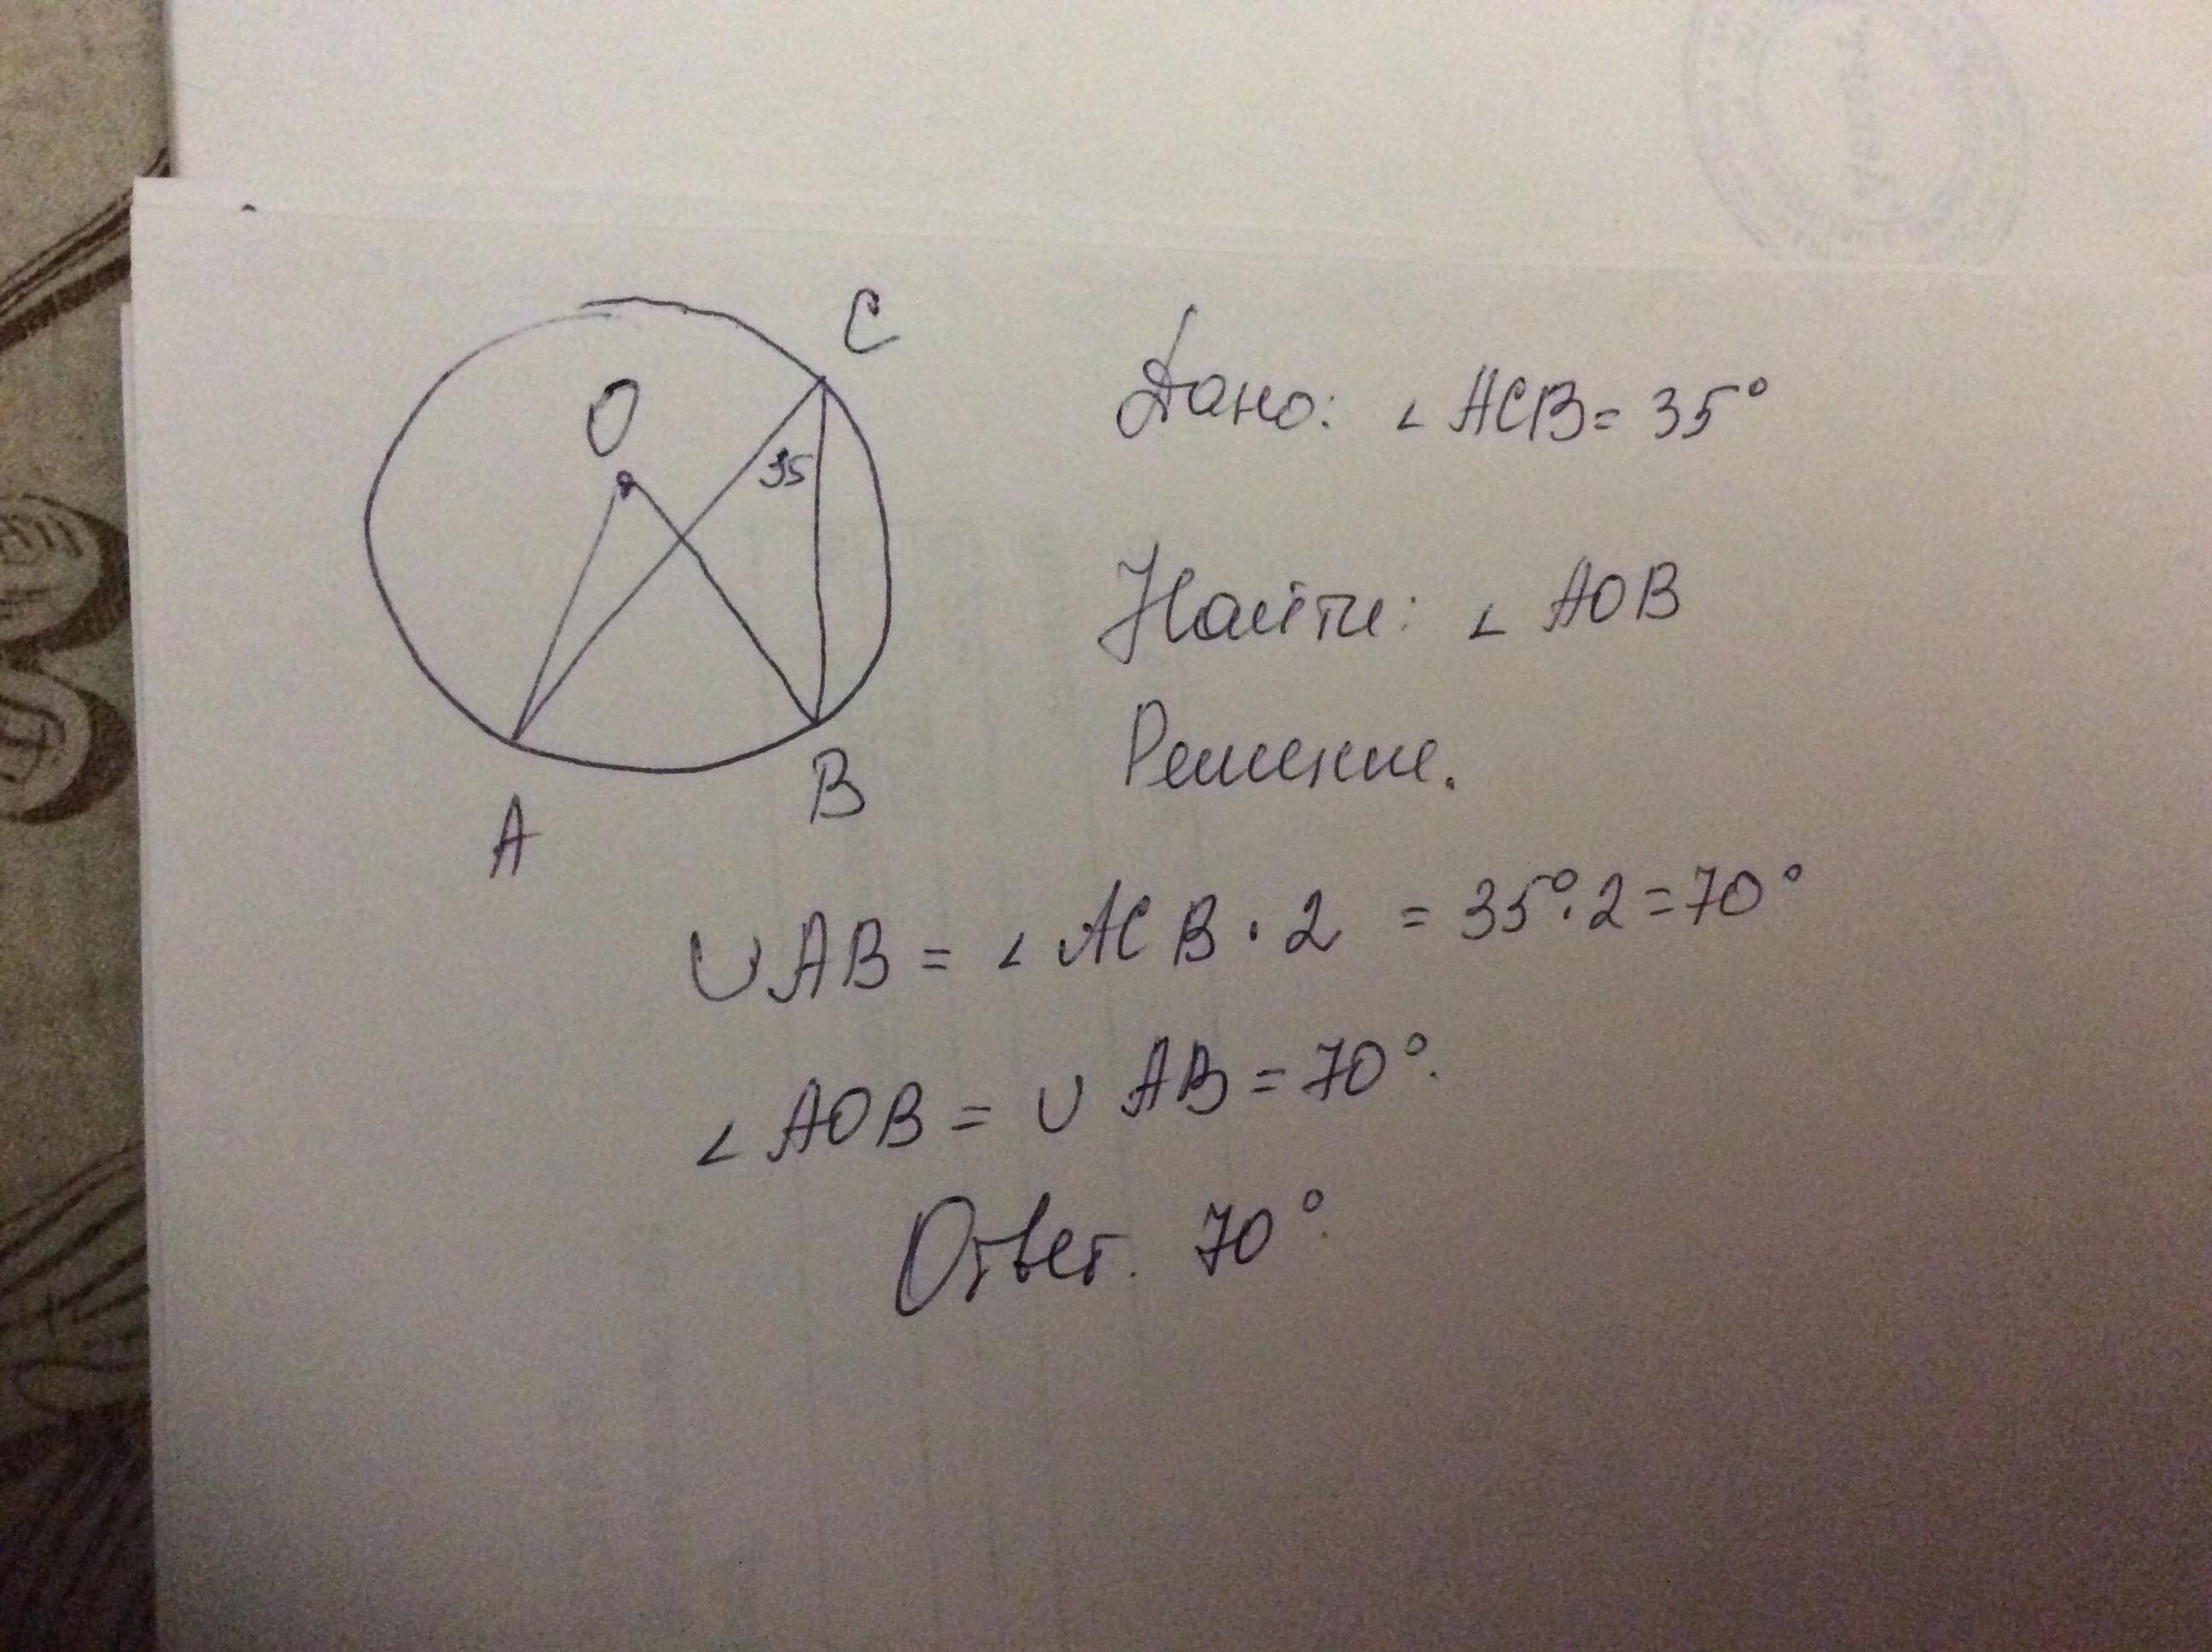 C
O
35
A
B
Дано: ∠ ACB = 35°
Найти: ∠ AOB
Решение.
∪AB = ∠ ACB · 2 = 35° · 2 = 70°
∠ AOB = ∪ AB = 70°.
Ответ. 70°.